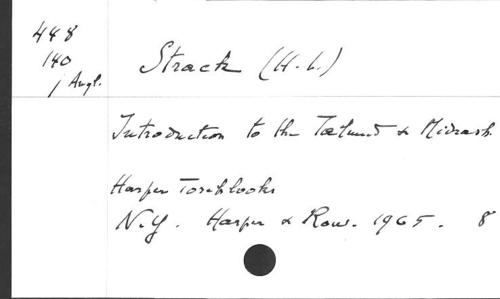 448
140
j Angl.
Strack (H. L.)
Introduction to the Talmud & Midrash
Harper Torchbooks
N.Y. Harper & Row. 1965. 8